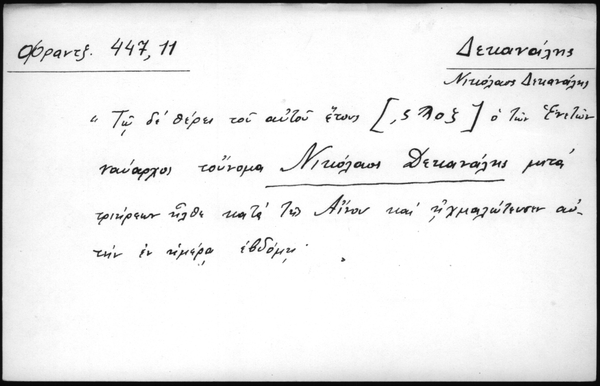 Φραντζ. 447, 11
Δεκανάλης
Νικόλαος Δεκανάλης
" Τῷ δὲ θέρει τοῦ αὐτοῦ ἔτους [,ς λοξ] ὁ τῶν Ἐνετῶν
ναύαρχος τοὔνομα Νικόλαος Δεκανάλης μετὰ
τριήρεων ἦλθε κατὰ τῆς Αἴνου καὶ ᾐχμαλώτευσεν αὐ-
τὴν ἐν ἡμέρᾳ ἑβδόμῃ.